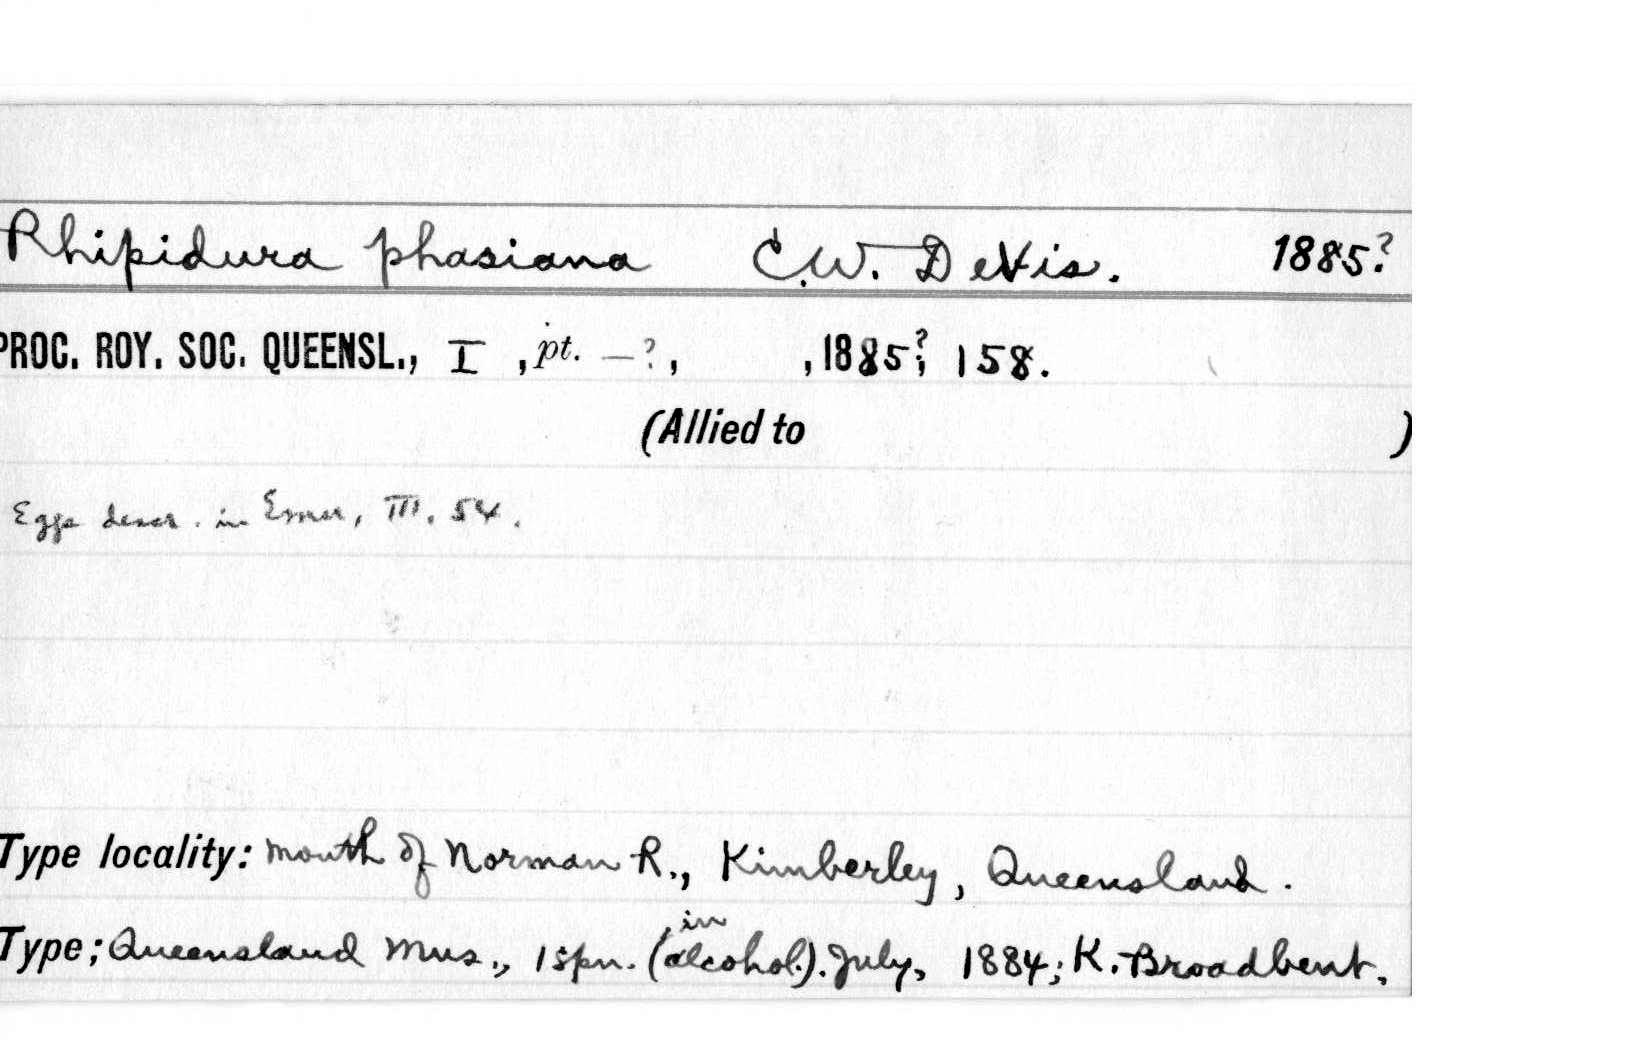 Rhipidura phasiana C.W. DeVis. 1885?
PROC. ROY. SOC. QUEENSL., I , pt. —?, , 1885?; 158.
(Allied to )
Eggs descr. in Emu, III. 54.
Type locality: mouth of Norman R., Kimberley, Queensland.
Type; Queensland Mus., 1 spn. (in alcohol). July, 1884; K. Broadbent.